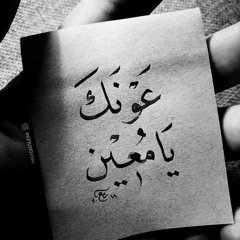 عَوْنَكَ
يَا مُعِيْن